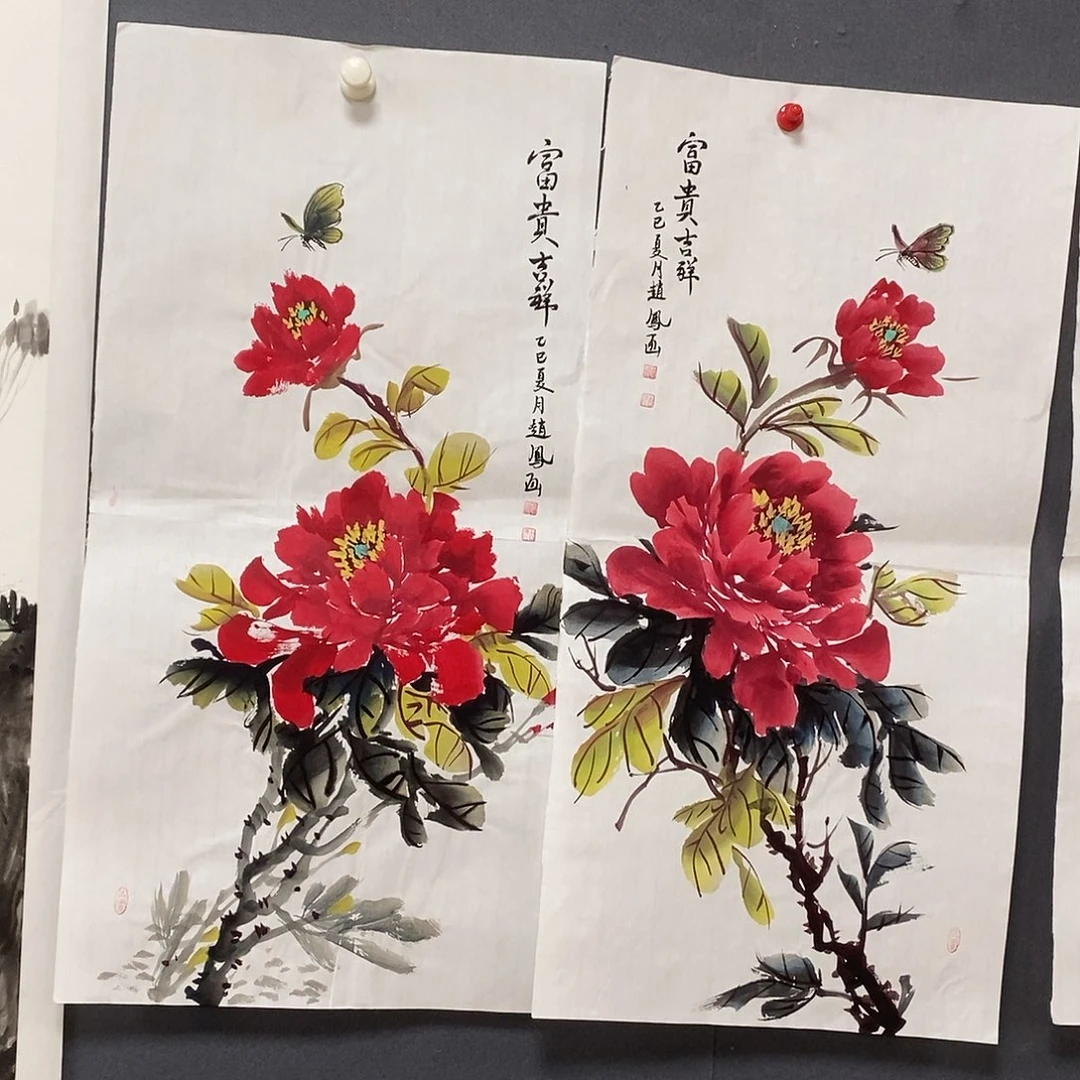 富貴吉祥
乙巳夏月趙鳳画
富貴吉祥
乙巳夏月趙鳳画